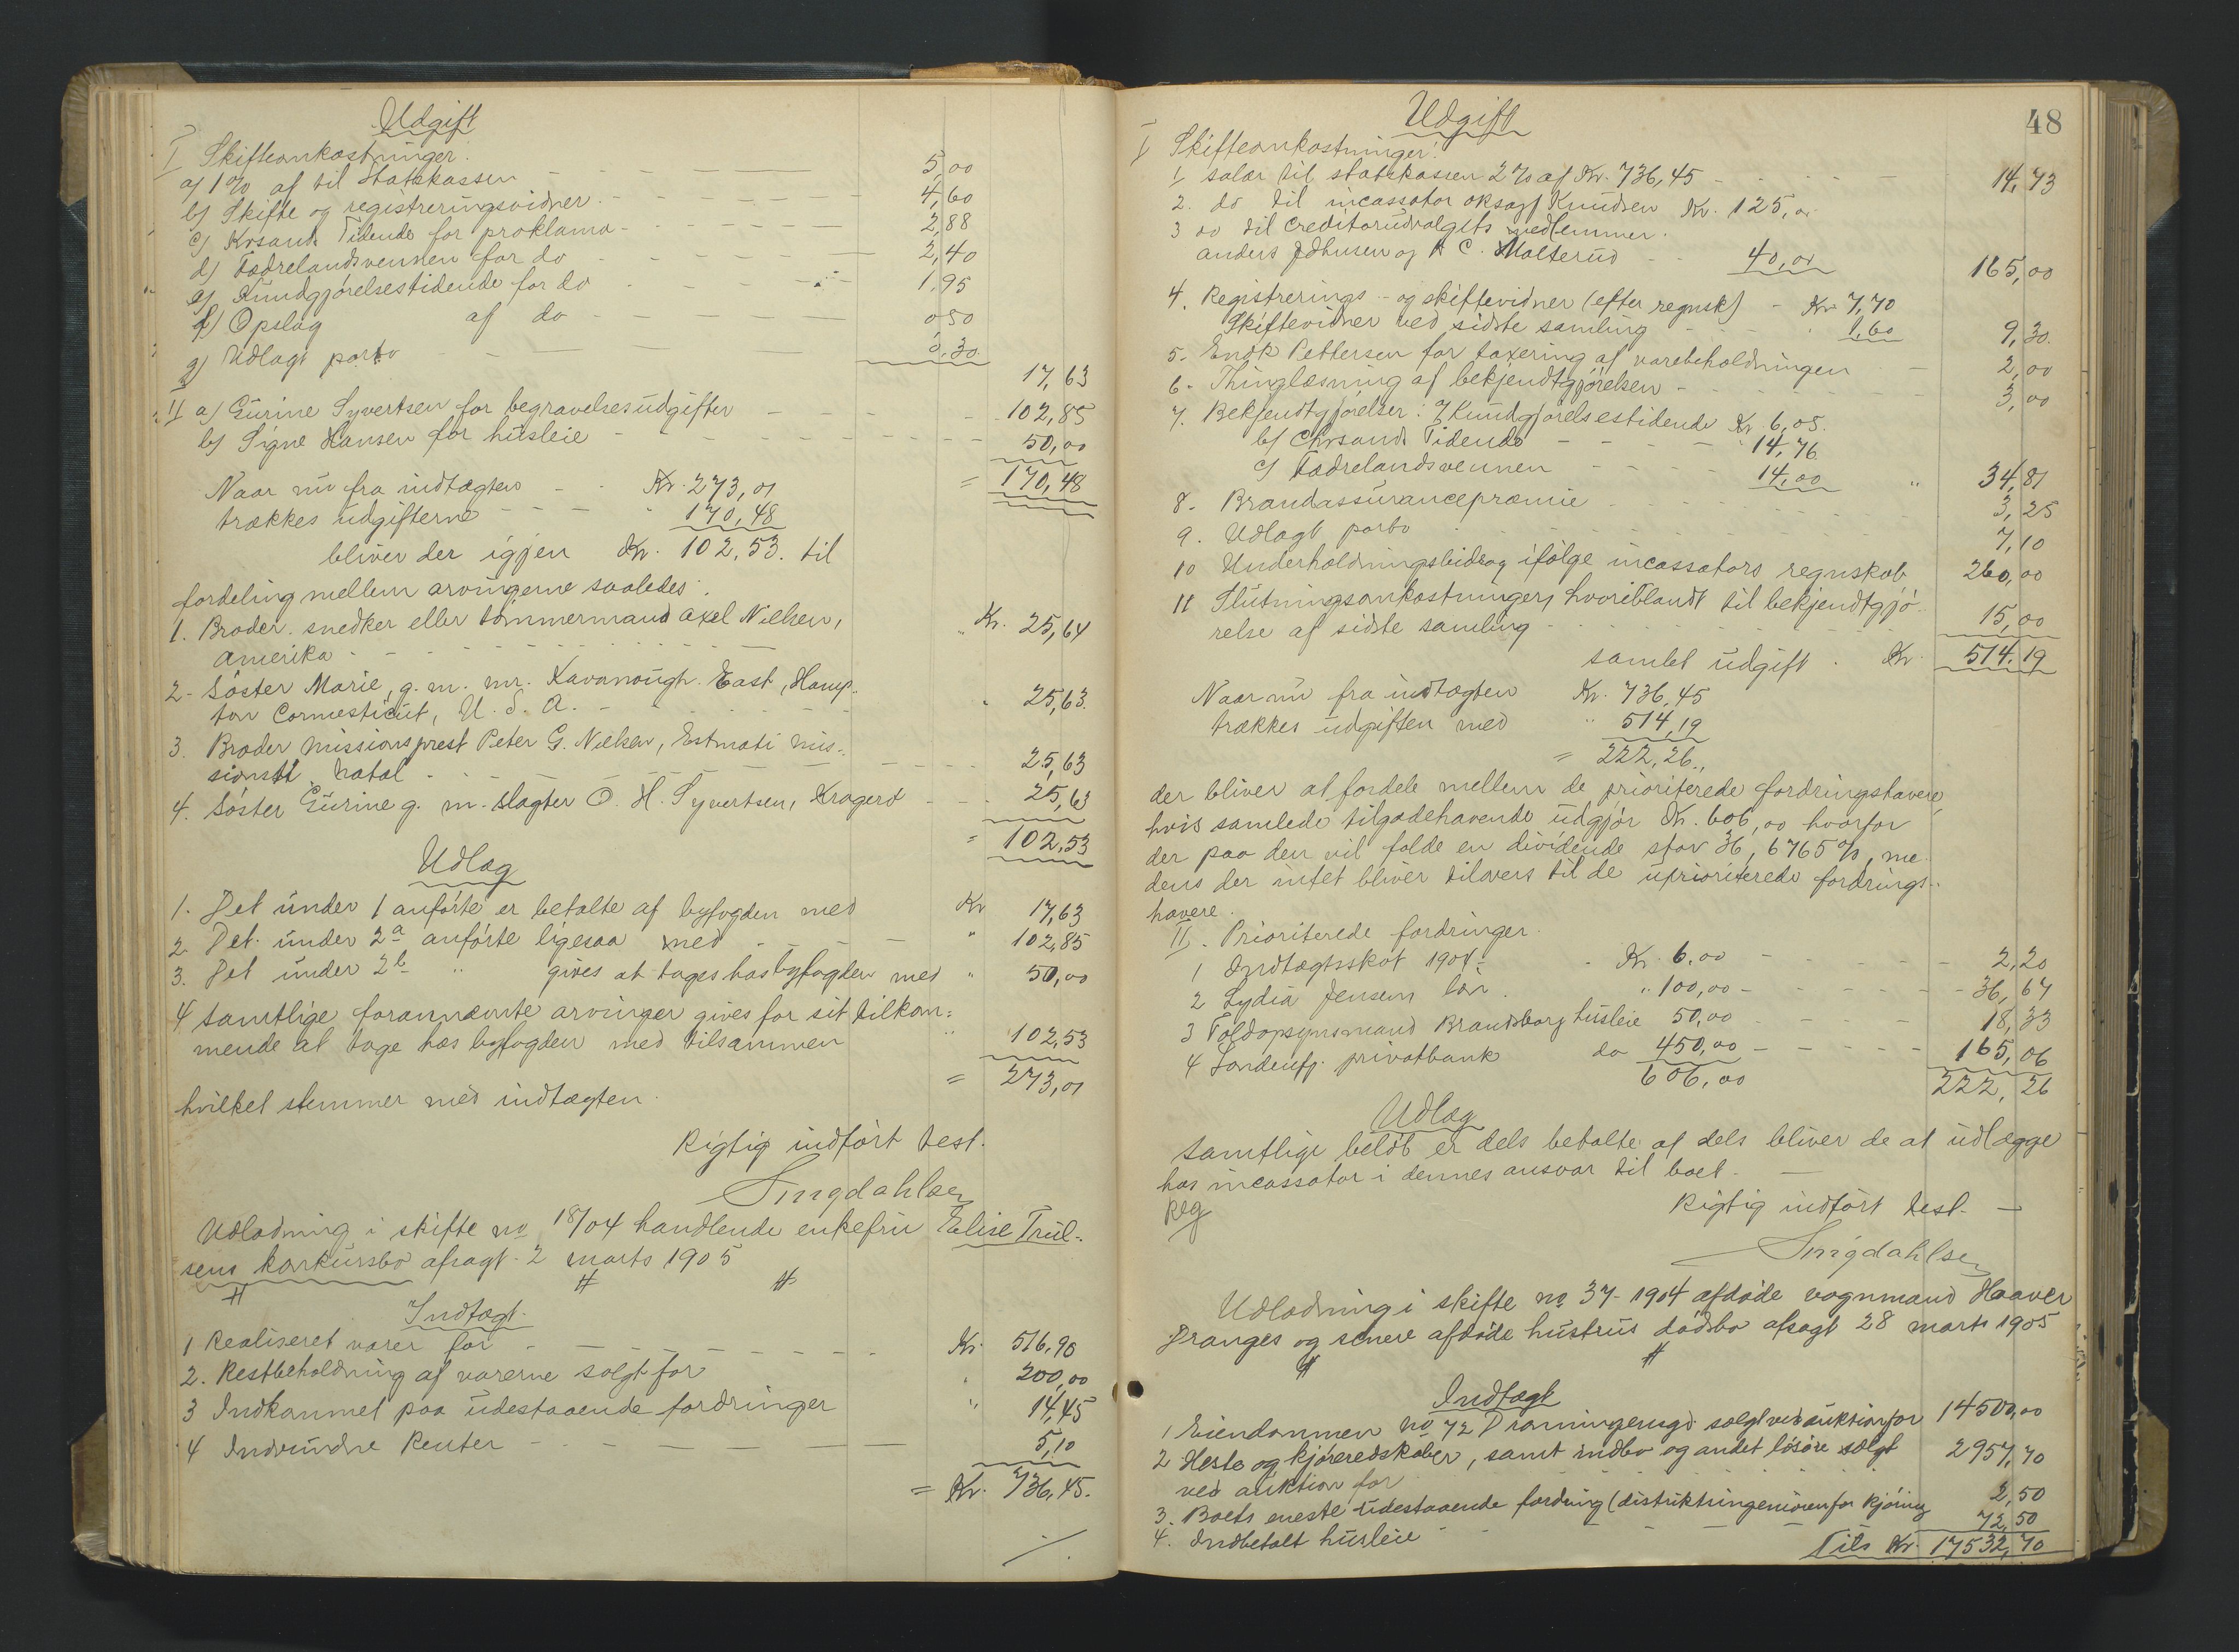 Udgift
I Skifteomkostninger.
a) 1% af til Statskassen - - - - 5,00
b) Skifte og registreringsvidner - - - - 4,60
c) Krsands Tidende for proklama - - - - 2,88
d) Fædrelandsvennen for do - - - - 2,40
e) Kundgjørelsestidende for do - - - 1,95
f) Opslag af do - - - - 0 50
g) Udlagt porto - - - - 0,30
17,63
II a) Gurine Syvertsen for begravelsesudgifter - - - - 102,85
b) Signe Hansen for husleie - - - - 50,00
Naar nu fra indtægten - - Kr. 273,01 = 170,48
trækkes udgifterne - - - " 170,48
bliver der igjen Kr. 102,53. til
fordeling mellem arvingerne saaledes.
1. Broder. snedker eller tømmermand Axel Nielsen,
Amerika - - - - " Kr. 25,64
2- Søster Marie, g. m. mr. Kavanough. East, Hamp-
ton Connesticut, U. S. A. - - - - " 25,63.
3. Broder Missionsprest Peter G. Nielsen, Estmati mis-
sionsst. Natal - - - - 25,63
4. Søster Gurine g. m. slagter O. H. Syvertsen, Kragerø - - - 25,63
= 102,53
Udlæg
1. Det under 1 anførte er betalte af byfogden med Kr 17,63
2. Det under 2a anførte ligesaa med - - - " 102,85
3. Det under 2b " gives at tages hos byfogden med " 50,00
4 Samtlige forannævnte arvinger gives for sit tilkom-
mende at tage hos byfogden med tilsammen " 102,53
= 273,01
hvilket stemmer med indtægten.
Rigtig indført test.
Singdahlsen
Udlodning i skifte no 18/04 handlende enkefru Elise Trul-
sens konkursbo afsagt 2 marts 1905
Indtægt.
1 Realiseret varer for - - - - Kr. 516,90
2. Restbeholdning af varerne solgt for " 200,00
3 Indkommet paa udestaaende fordringer " 14,45
4 Indvundne Renter - - - - 5,10
= Kr. 736,45.
48
Udgift
I Skifteomkostninger:
1 salær til statskassen 2% af Kr. 736,45 - - - - 14,73
2. do til incassator oksagf Knudsen Kr. 125,00
3 do til creditorudvalgets medlemmer.
Anders Johnsen og A C. Molterud - - 40,00 165,00
4. Registrerings- og skiftevidner (efter regnsk) - Kr 7,70
Skiftevidner ved sidste samling - - " 1,60 9,30.
5- Enok Pettersen for taxering af varebeholdningen - 2,00
6- Thinglæsning af bekjendtgjørelsen - - - - 3,00
7. Bekjendtgjørelser: Kundgjørelsestidende Kr. 6,05.
b) Chrsands Tidende - - - - " 14,76
c) Fædrelandsvennen - - - - 14,00 " 34,81
8- Brandassurancepræmie - - - - 3,25
9. Udlagt porto - - - - 7,10
10 Underholdningsbidrag ifølge incassators regnskab 260,00
11 Slutningsomkostninger, hvoriblandt til bekjendtgjø-
relse af sidste samling - - - - 15,00
samlet udgift . Kr. 514,19
Naar nu fra indtægten Kr. 736,45
trækkes udgiften med " 514,19
= 222,26.,
der bliver at fordele mellem de prioriterede fordringshavere,
hvis samlede tilgodehavende udgjør Kr. 606,00 hvorfor
der paa den vil falde en dividende stor 36,6765%, me-
dens der intet bliver tilovers til de uprioriterede fordrings-
havere.
II. Prioriterede fordringer.
1 Indtægtsskat 1904- - Kr. 6,00 - - - - 2,20
2 Lydia Jensens løn . " 100,00 - - - - 36,67
3 Toldopsynsmand Brandsborg husleie 50,00 - - - 18,33
4 Søndenfj. privatbank do 450,00 - - - - 165,06
606,00 222,26
Udlæg
Samtlige beløb er dels betalte af dels bliver de at udlægge
hos incassator i dennes ansvar til boet. -
Reg Rigtig indført test. -
Singdahlsen
Udlodning i skifte no 37- 1904 afdøde vognmand Haaver
Dranges og senere afdøde hustrus dødsbo afsagt 28 marts 1905
Indtægt
1 Eiendommen No 72 Dronningensgd. solgt ved auktion for 14500,00
2 Heste og kjøreredskaber, samt indbo og andet løsøre solgt
ved auktion for - - - - 2957,70
3. Boets eneste udestaaende fordring (distriktsingeniøren for kjøring 2,50
4. Indbetalt husleie - - - - 72,50
Tils Kr. 17532,70